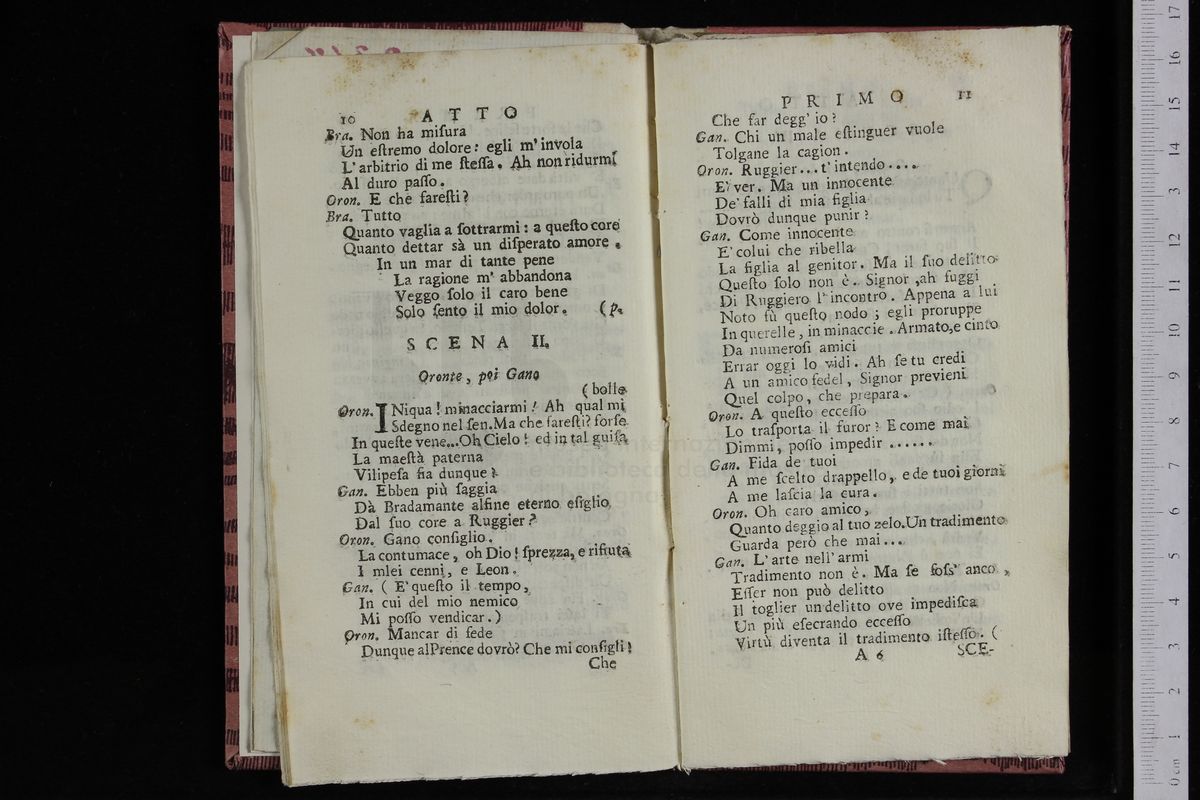 10 ATTO
Bra. Non ha miſura
Un eſtremo dolore: egli m'invola
L'arbitrio di me ſteſſa. Ah non ridurmi
Al duro paſſo.
Oron. E che fareſti?
Bra. Tutto
Quanto vaglia a ſottrarmi: a queſto core
Quanto dettar sà un diſperato amore.
In un mar di tante pene
La ragione m'abbandona
Veggo ſolo il caro bene
Solo ſento il mio dolor. (p.
SCENA II.
Oronte, poi Gano
(bolle
Oron. INiqua! minacciarmi! Ah qual mi
Sdegno nel ſen. Ma che fareſti? forſe
In queſte vene...Oh Cielo! ed in tal guiſa
La maeſtà paterna
Vilipeſa fia dunque?
Gan. Ebben più ſaggia
Dà Bradamante alfine eterno eſiglio
Dal ſuo core a Ruggier?
Oron. Gano conſiglio.
La contumace, oh Dio! ſprezza, e rifiuta
I miei cenni, e Leon.
Gan. (E' queſto il tempo,
In cui del mio nemico
Mi poſſo vendicar.)
Oron. Mancar di fede
Dunque al Prence dovrò? Che mi conſigli!
Che
PRIMO 11
Che far degg' io?
Gan. Chi un male eſtinguer vuole
Tolgane la cagion.
Oron. Ruggier...t'intendo....
E' ver. Ma un innocente
De' falli di mia figlia
Dovrò dunque punir?
Gan. Come innocente
E' colui che ribella
La figlia al genitor. Ma il ſuo delitto
Queſto ſolo non è. Signor, ah fuggi
Di Ruggiero l'incontro. Appena a lui
Noto fù queſto nodo; egli proruppe
In querelle, in minaccie. Armato, e cinto
Da numeroſi amici
Errar oggi lo vidi. Ah ſe tu credi
A un amico fedel, Signor previeni
Quel colpo, che prepara.
Oron. A queſto ecceſſo
Lo traſporta il furor? E come mai
Dimmi, poſſo impedir ......
Gan. Fida de' tuoi
A me ſcelto drappello, e de tuoi giorni
A me laſcia la cura.
Oron. Oh caro amico,
Quanto deggio al tuo zelo. Un tradimento
Guarda però che mai...
Gan. L'arte nell'armi
Tradimento non è. Ma ſe foſs' anco,
Eſſer non può delitto
Il toglier un delitto ove impediſca
Un più eſecrando ecceſſo
Virtù diventa il tradimento iſteſſo. (
A 6 SCE-